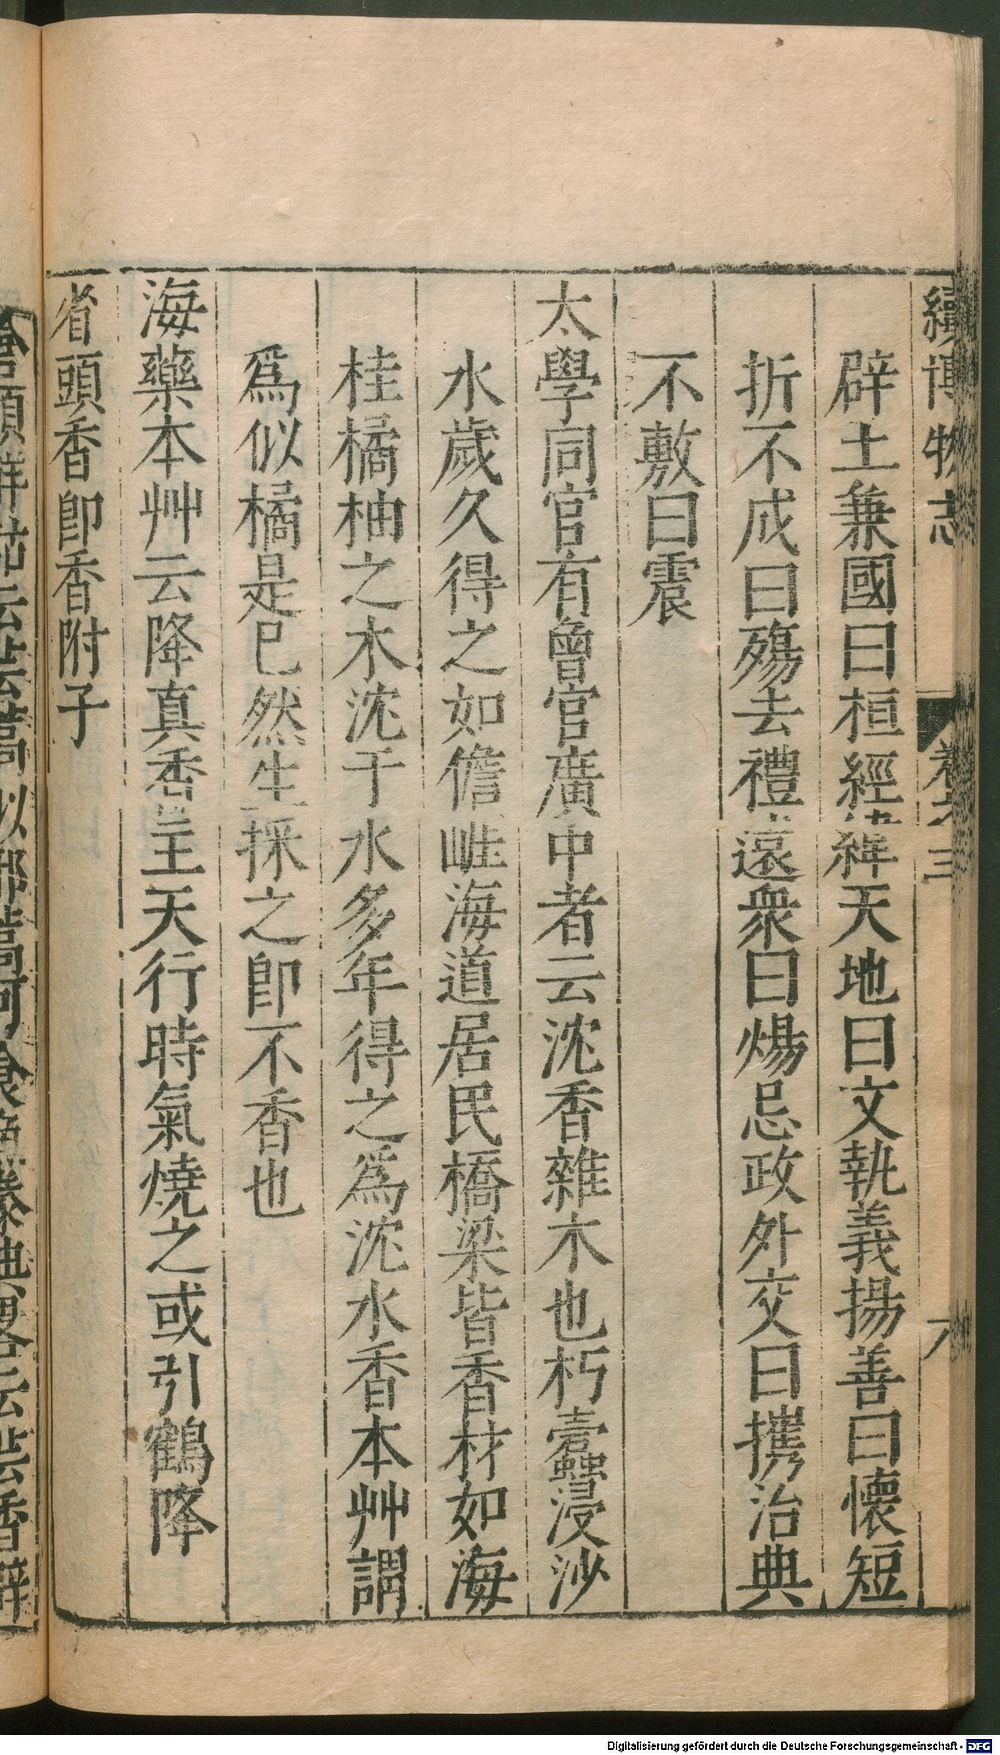 續博物志
卷之三
六
辟土兼國曰桓經緯天地曰文執義揚善曰懷短
折不成曰殤去禮遠衆曰煬忌政外交曰擕治典
不敷曰震
太學同官有曾官廣中者云沈香雜木也朽蠹浸沙
水歲久得之如儋崖海道居民橋梁皆香材如海
桂橘柚之木沈于水多年得之爲沈水香本艸謂
爲似橘是已然生採之卽不香也
海藥本艸云降真香主天行時氣燒之或引鶴降
省頭香卽香附子
Digitalisierung gefördert durch die Deutsche Forschungsgemeinschaft - DFG